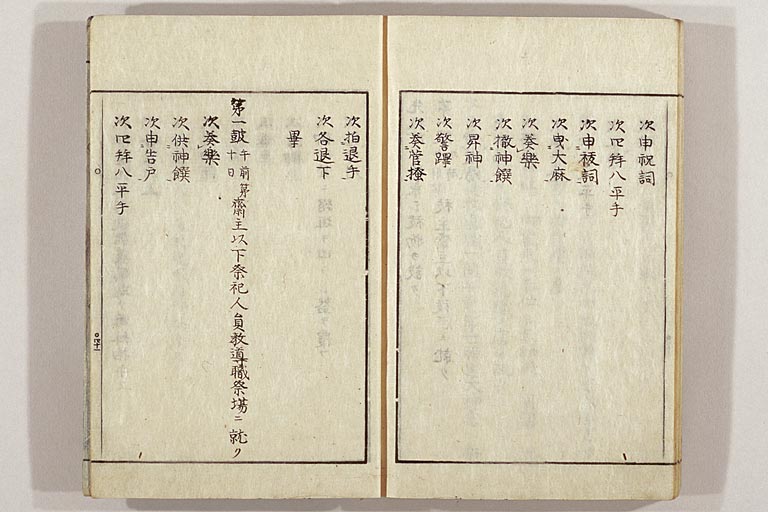 次申祝詞
次四拜八平手
次申祓詞
次曳大麻
次奏樂
次撤神饌
次昇神
次警蹕
次奏菅搔
次拍退手
次各退下
畢
第一鼓 午前第十日 齋主以下祭祀人員教導職祭場ニ就ク
次奏樂
次供神饌
次申告戸
次四拜八平手